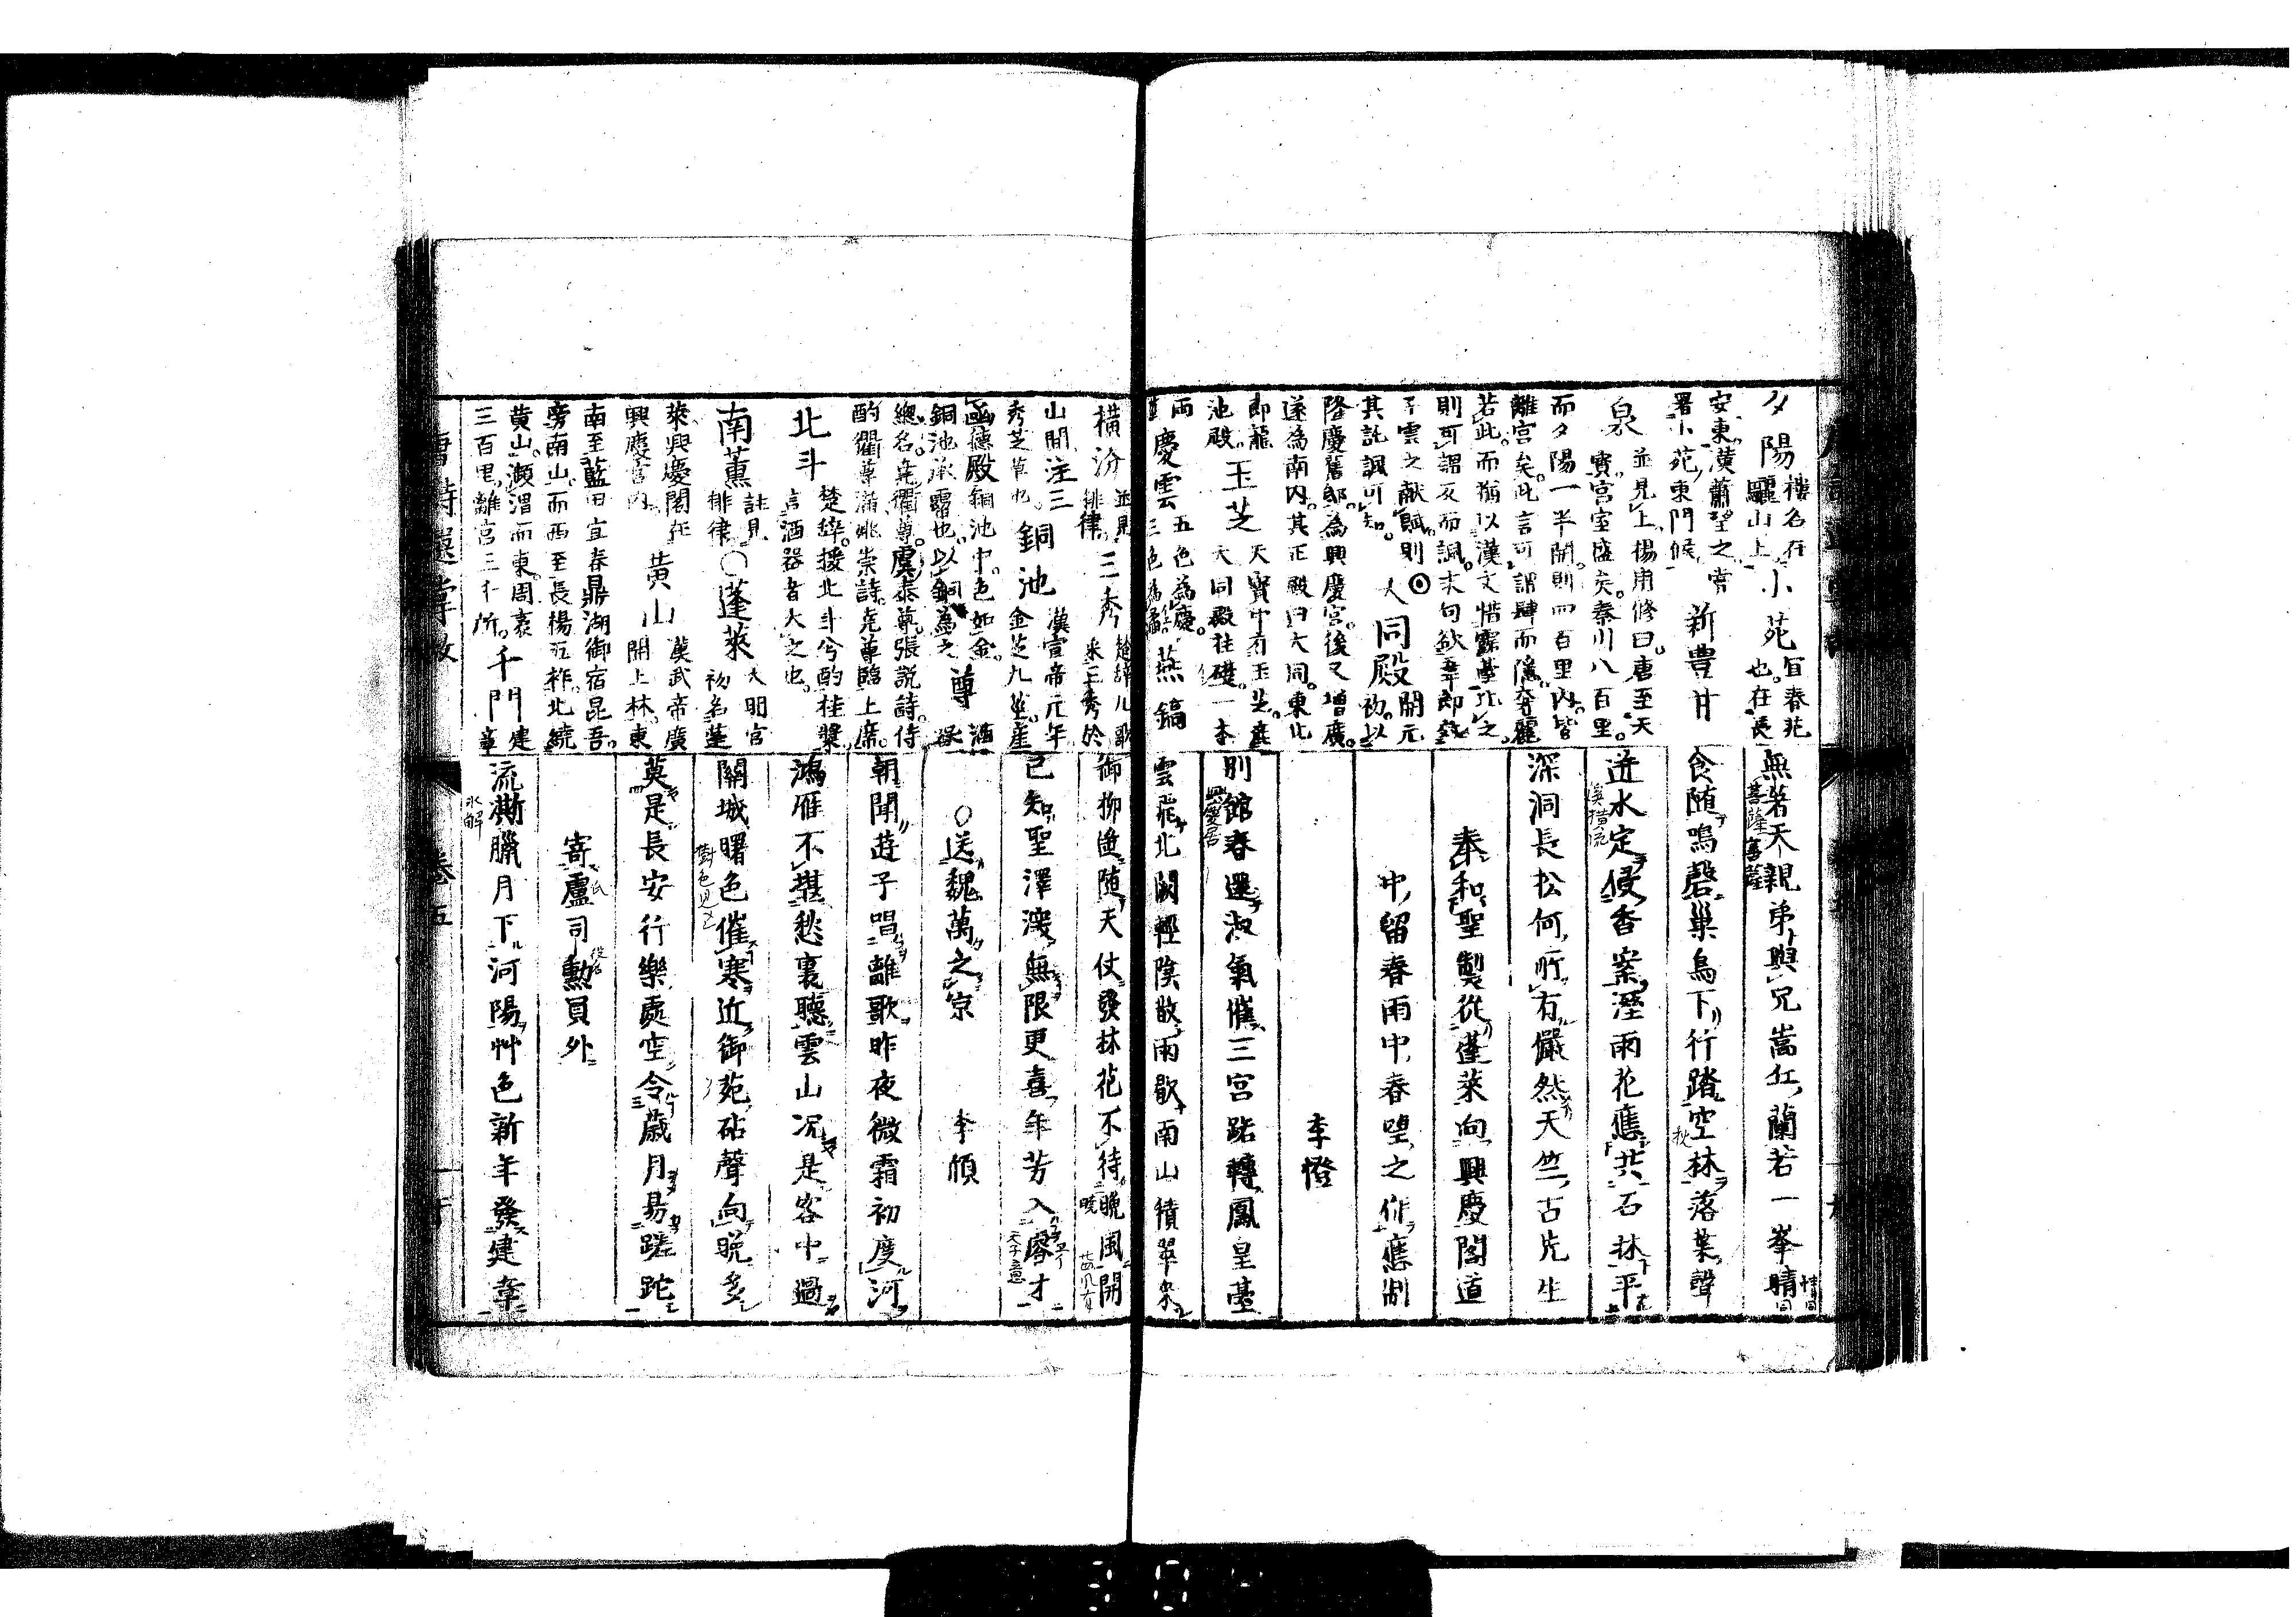 夕陽樓名在驪山上小苑宜春苑也在長
安東漢蕭望之嘗署小苑東門候新豊甘
泉並見上楊用修曰唐至天寳宮室盛矣秦川八百里
而夕陽一半開則四百里內皆離宮矣此言可謂肆而隱奢麗
若此而猶以漢文惜露臺比之則可謂反而諷末句欲奉郎
子雲之献賦則其託諷可知大同殿開元初以
隆慶舊邸為興慶宮後又增廣遂為南內其正殿曰大同東北
即龍池殿玉芝天寳中有玉芝產大同殿柱礎一本
兩慶雲五色為慶三色為矞燕鎬
無著天親弟與兄嵩丘蘭若一峯晴
食随鳴磬巢烏下行踏空林落葉聲
迸水定侵香案溼雨花應共石牀平
深洞長松何所有儼然天竺古先生
奉和聖製從蓬萊向興慶閣道
中留春雨中春望之作應制
李憕
別館春還淑氣催三宮路轉鳳皇臺
雲飛北闕輕陰散雨歇南山積翠來
橫汾並見排律三秀楚辭九歌采三秀於
山間注三秀芝草也銅池漢宣帝元年金芝九莖產
函德殿銅池中色如金銅池承霤也以銅為之尊酒器
總名堯衢尊虞泰尊張説詩侍酌衢尊滿姚崇詩堯尊臨上席
北斗楚辭援北斗兮酌桂漿言酒器者大之也
南薫註見排律○蓬萊大明宮初名蓬
萊興慶閣在興慶宮內黃山漢武帝廣開上林東
南至藍田宜春鼎湖御宿昆吾旁南山而西至長楊五柞北繞
黃山瀕渭而東周袤三百里離宮三千所千門建章
御柳遙隨天仗發林花不待晚風開
已知聖澤深無限更喜年芳入睿才
○送魏萬之京 李頎
朝聞遊子唱離歌昨夜微霜初度河
鴻雁不堪愁裏聽雲山况是客中過
關城曙色催寒近御苑砧聲向晚多
莫是長安行樂處空令歳月易蹉跎
寄盧司勲員外
流澌臘月下河陽艸色新年發建章
唐詩選掌故 卷五